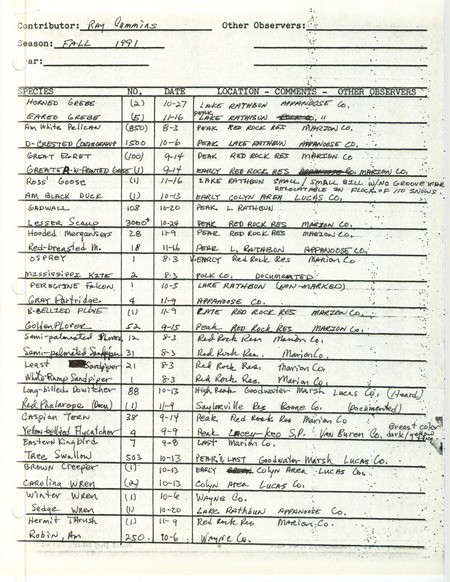 Contributor: Ray Cummins Other Observers:
Season: FALL 1991
ar:
SPECIES NO. DATE LOCATION - COMMENTS - OTHER OBSERVERS
HORNED GREBE (2) 10-27 LAKE RATHBUN APPANOOSE Co.
EARED GREBE (5) 11-16 PEAK LAKE RATHBUN "
Am White Pelican (850) 8-3 PEAK RED ROCK RES MARION Co.
D-CRESTED CORMORANT 1500 10-6 PEAK LAKE RATHBUN APPANOOSE Co.
GREAT EGRET (100) 9-14 PEAK RED ROCK RES MARION Co
GREATER W-FRONTED GOOSE (1) 9-14 EARLY RED ROCK RES MARION Co.
ROSS' GOOSE (1) 11-16 LAKE RATHBUN SMALL / SMALL BILL W/NO GROOVE
RELOCATABLE IN FLOCK OF 110 SNOWS.
AM BLACK DUCK (1) 10-13 EARLY COLYN AREA LUCAS Co.
GADWALL 108 10-20 PEAK L. RATHBUN
LESSER Scaup 3000+ 10-24 PEAK RED ROCK RES MARION Co.
Hooded Mergansers 28 11-9 PEAK RED ROCK RES MARION Co.
Red-breasted M. 18 11-16 PEAK L. RATHBUN APPANOOSE Co.
OSPREY 1 8-3 V.EARLY Red Rock Res Marion Co
MISSISSIPPI KITE 2 8-3 POLK Co. DOCUMENTED
PEREGRINE FALCON 1 10-5 LAKE RATHBUN (NON-MARKED)
GRAY Partridge 4 11-9 APPANOOSE Co.
B-BELLIED PLOVE (1) 11-9 RED ROCK RES MARION Co.
Golden Plover 52 9-15 Peak RED ROCK RES MARION Co.
Semi-palmated Plover 12 8-3 Red Rock Res. Marion Co.
Semi-palmated Sandpiper 31 8-3 Red Rock Res. Marion Co.
Least Sandpiper 21 8-3 Red Rock Res. Marion Co.
White-Rump Sandpiper 1 8-3 Red Rock Res. Marion Co.
Long-billed Dowitcher 88 10-13 High Peak Goodwater Marsh Lucas Co. (Heard)
Red Phalarope (1) 11-9 Saylorville Res Boone Co. (Documented)
Caspian Tern 38 9-14 Peak Red Rock Res Marion Co
Yellow-bellied Flycatcher 4 9-9 Peak Lacey-Keo S.P. Van Buren Co. Breast color dark/yellow
Eastern Kingbird 7 9-8 Last Marion Co.
Tree Swallow 503 10-13 PEAK & LAST Goodwater Marsh Lucas Co.
Brown Creeper (1) 10-13 EARLY Colyn Area Lucas Co.
Carolina Wren (2) 10-13 Colyn Area Lucas Co.
Winter Wren (1) 10-6 Wayne Co.
Sedge Wren (1) 10-20 Lake Rathbun Appanoose Co.
Hermit Thrush (1) 11-9 Red Rock Res Marion Co.
Robin, Am 250 10-6 Wayne Co.